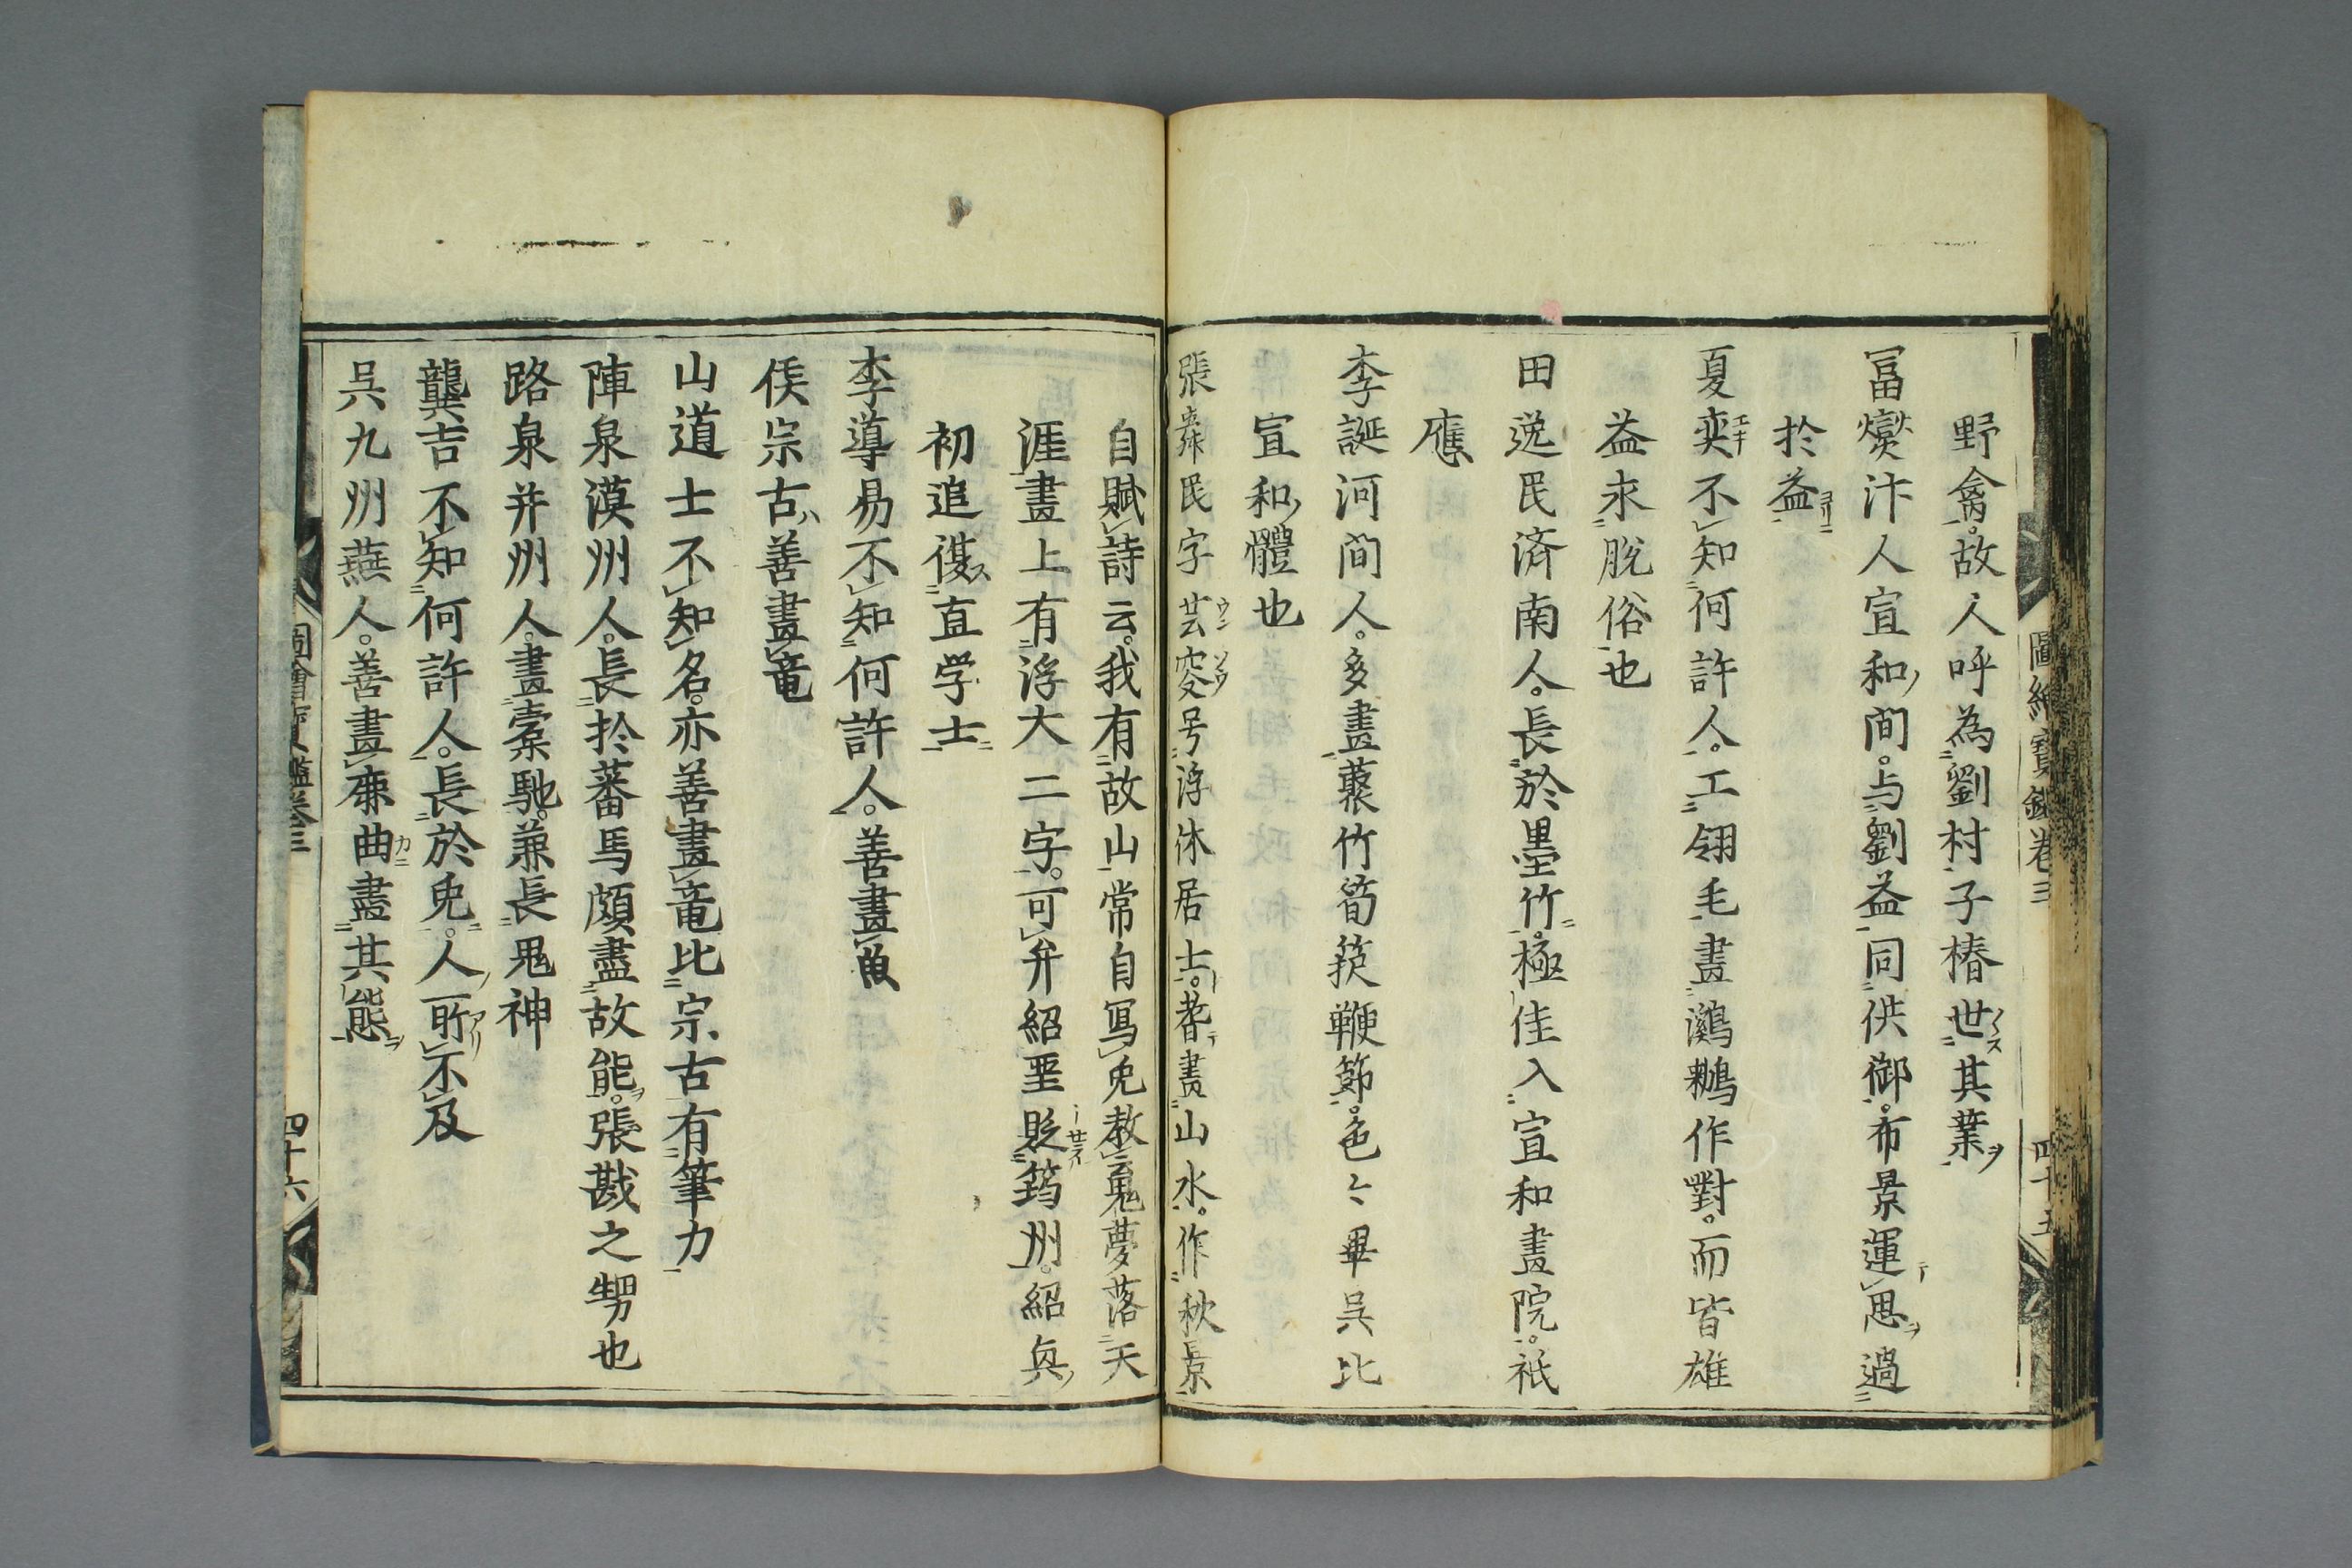 野禽故人呼為劉村子椿世其業
冨燮汴人宣和間与劉益同供御布景運思過
於益
夏奕不知何許人工翎毛畫鸂鶒作對而皆雄
益求脫俗也
田逸民済南人長於墨竹極佳入宣和畫院祇
應
李誕河間人多畫藂竹筍籜鞭節色〻畢具比
宣和體也
張舜民字芸叜号浮休居士甞畫山水作秋景
自賦詩云我有故山常自冩免教魂夢落天
涯畫上有浮大二字可弁紹聖貶筠州紹興
初追復直学士
李導易不知何許人善畫魚
侯宗古善畫竜
山道士不知名亦善畫竜比宗古有筆力
陣皐漠州人長於蕃馬頗盡故能張戡之甥也
路皐并州人畫槖馳兼長鬼神
龔吉不知何許人長於兔人所不及
吳九州燕人善畫麻曲盡其能
圖繪寶鑑卷三
四十五
圖會寳鑑卷三
四十六